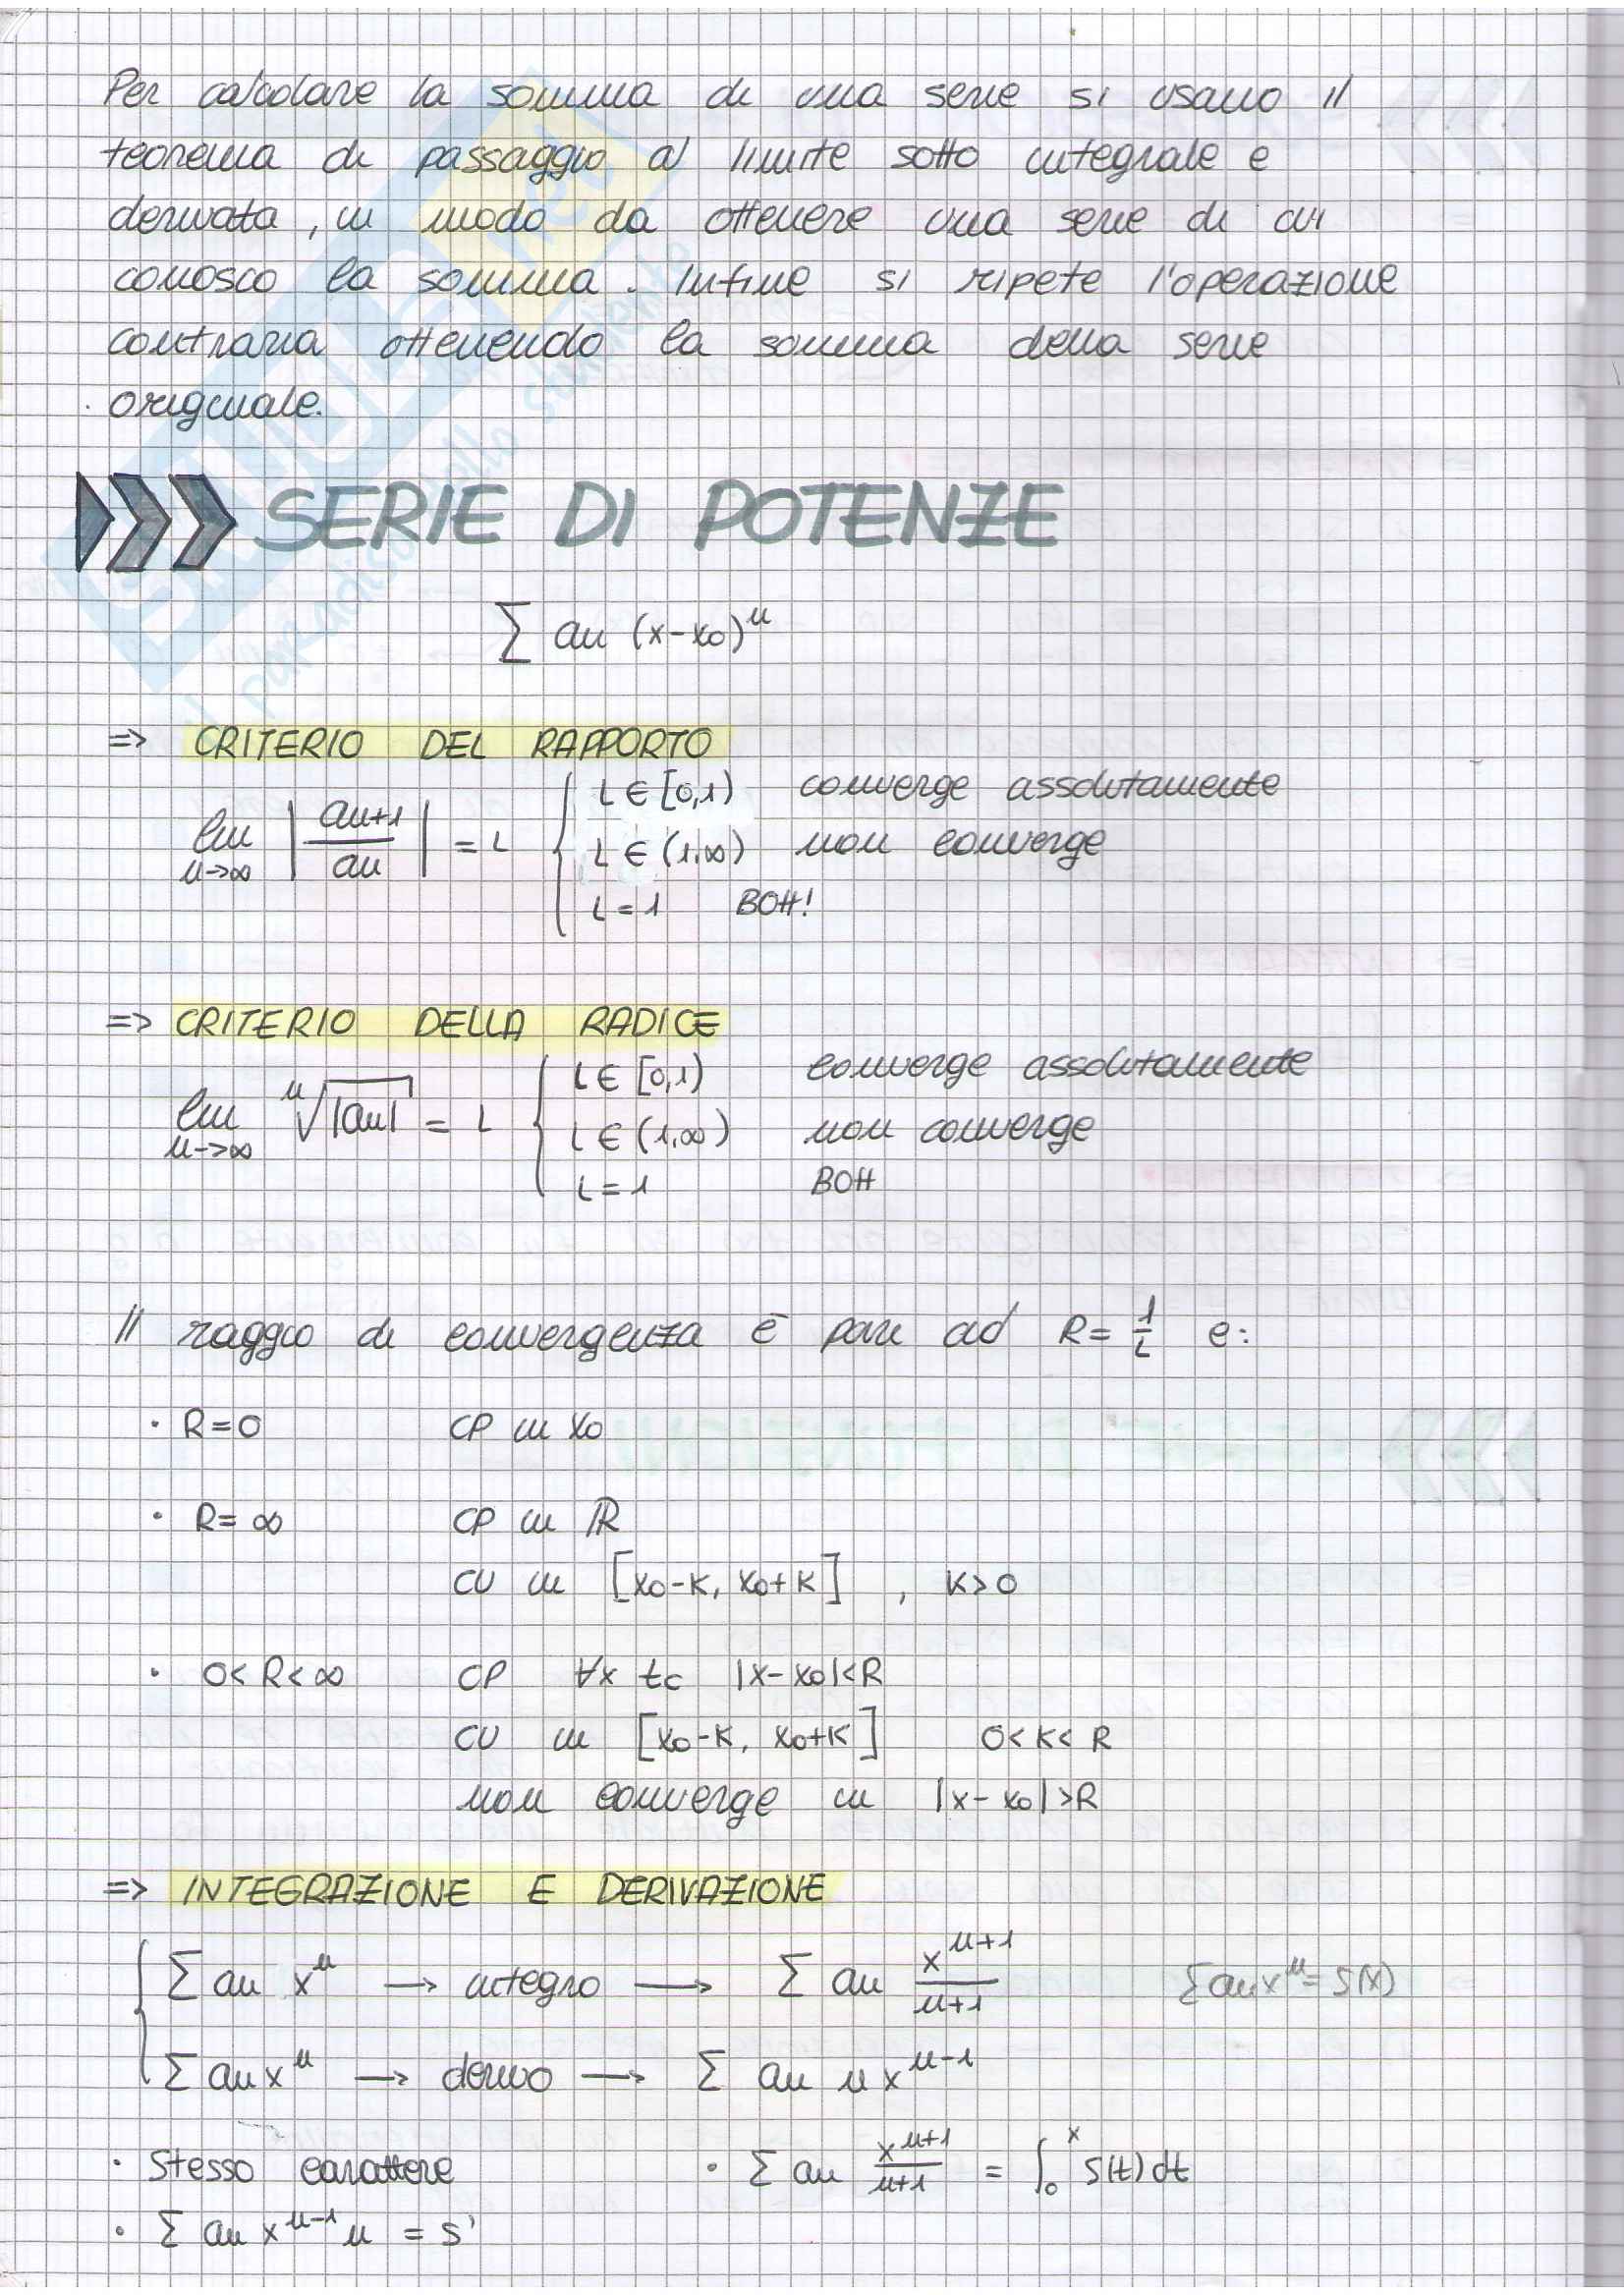 Per calcolare la somma di una serie si usano il
teorema di passaggio al limite sotto integrale e
derivata, in modo da ottenere una serie di cui
conosco la somma. Infine si ripete l'operazione
contraria ottenendo la somma della serie
originale.
SERIE DI POTENZE
∑ an (x-x0)^n
=> CRITERIO DEL RAPPORTO
lim n->∞ |an+1/an| = L { L ∈ [0,1) converge assolutamente
L ∈ (1,∞) non converge
L = 1 BOH!
=> CRITERIO DELLA RADICE
lim n->∞ ⁿ√|an| = L { L ∈ [0,1) converge assolutamente
L ∈ (1,∞) non converge
L = 1 BOH
Il raggio di convergenza è pari ad R = 1/L e:
· R = 0 CP in x0
· R = ∞ CP in ℝ
CU in [x0-K, x0+K] , K>0
· 0<R<∞ CP ∀x tc |x-x0|<R
CU in [x0-K, x0+K] 0<K<R
non converge in |x-x0|>R
=> INTEGRAZIONE E DERIVAZIONE
{ ∑ an x^n → integro → ∑ an x^(n+1)/(n+1) ∑ an x^n = S(x)
∑ an x^n → derivo → ∑ an n x^(n-1)
· Stesso carattere · ∑ an x^(n+1)/(n+1) = ∫₀ˣ S(t) dt
· ∑ an x^(n-1) n = S'